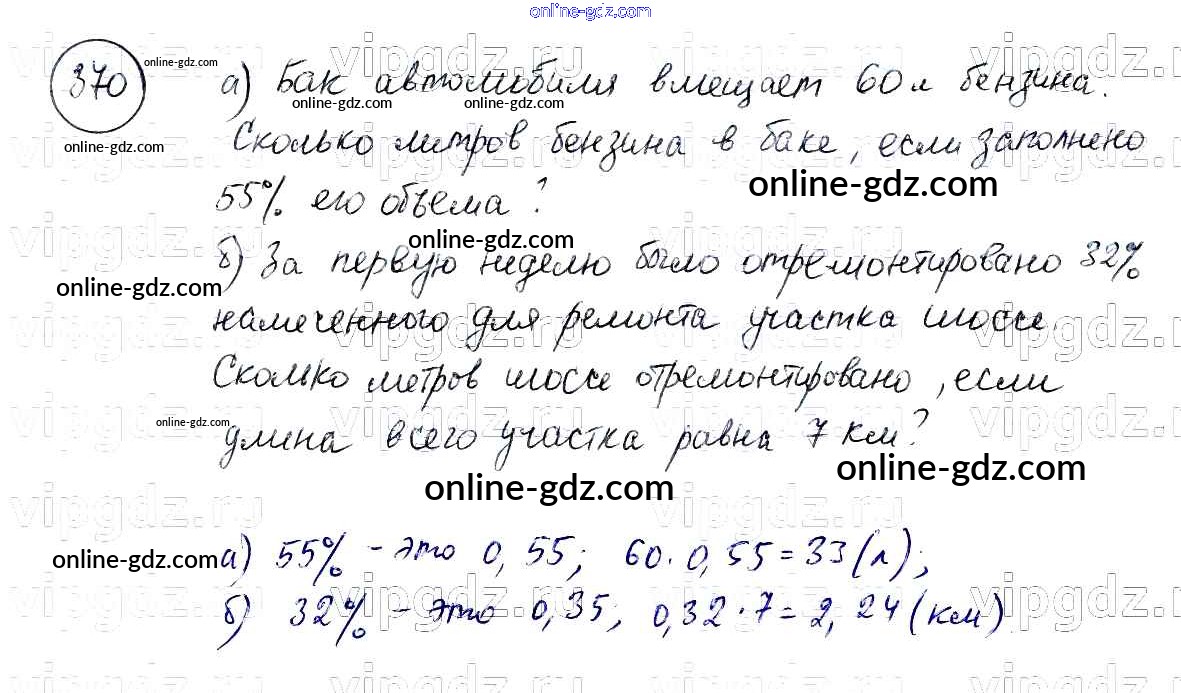 online-gdz.com
370 а) Бак автомобиля вмещает 60 л бензина.
online-gdz.com
online-gdz.com online-gdz.com
Сколько литров бензина в баке, если заполнено
online-gdz.com
55% его объема?
online-gdz.com
online-gdz.com
б) За первую неделю было отремонтировано 32%
online-gdz.com
намеченного для ремонта участка шоссе.
Сколько метров шоссе отремонтировано, если
online-gdz.com
длина всего участка равна 7 км?
online-gdz.com
online-gdz.com
online-gdz.com
а) 55% - это 0,55; 60 · 0,55 = 33 (л);
б) 32% - это 0,35; 0,32 · 7 = 2,24 (км)
vipgdz.ru vipgdz.ru vipgdz.ru